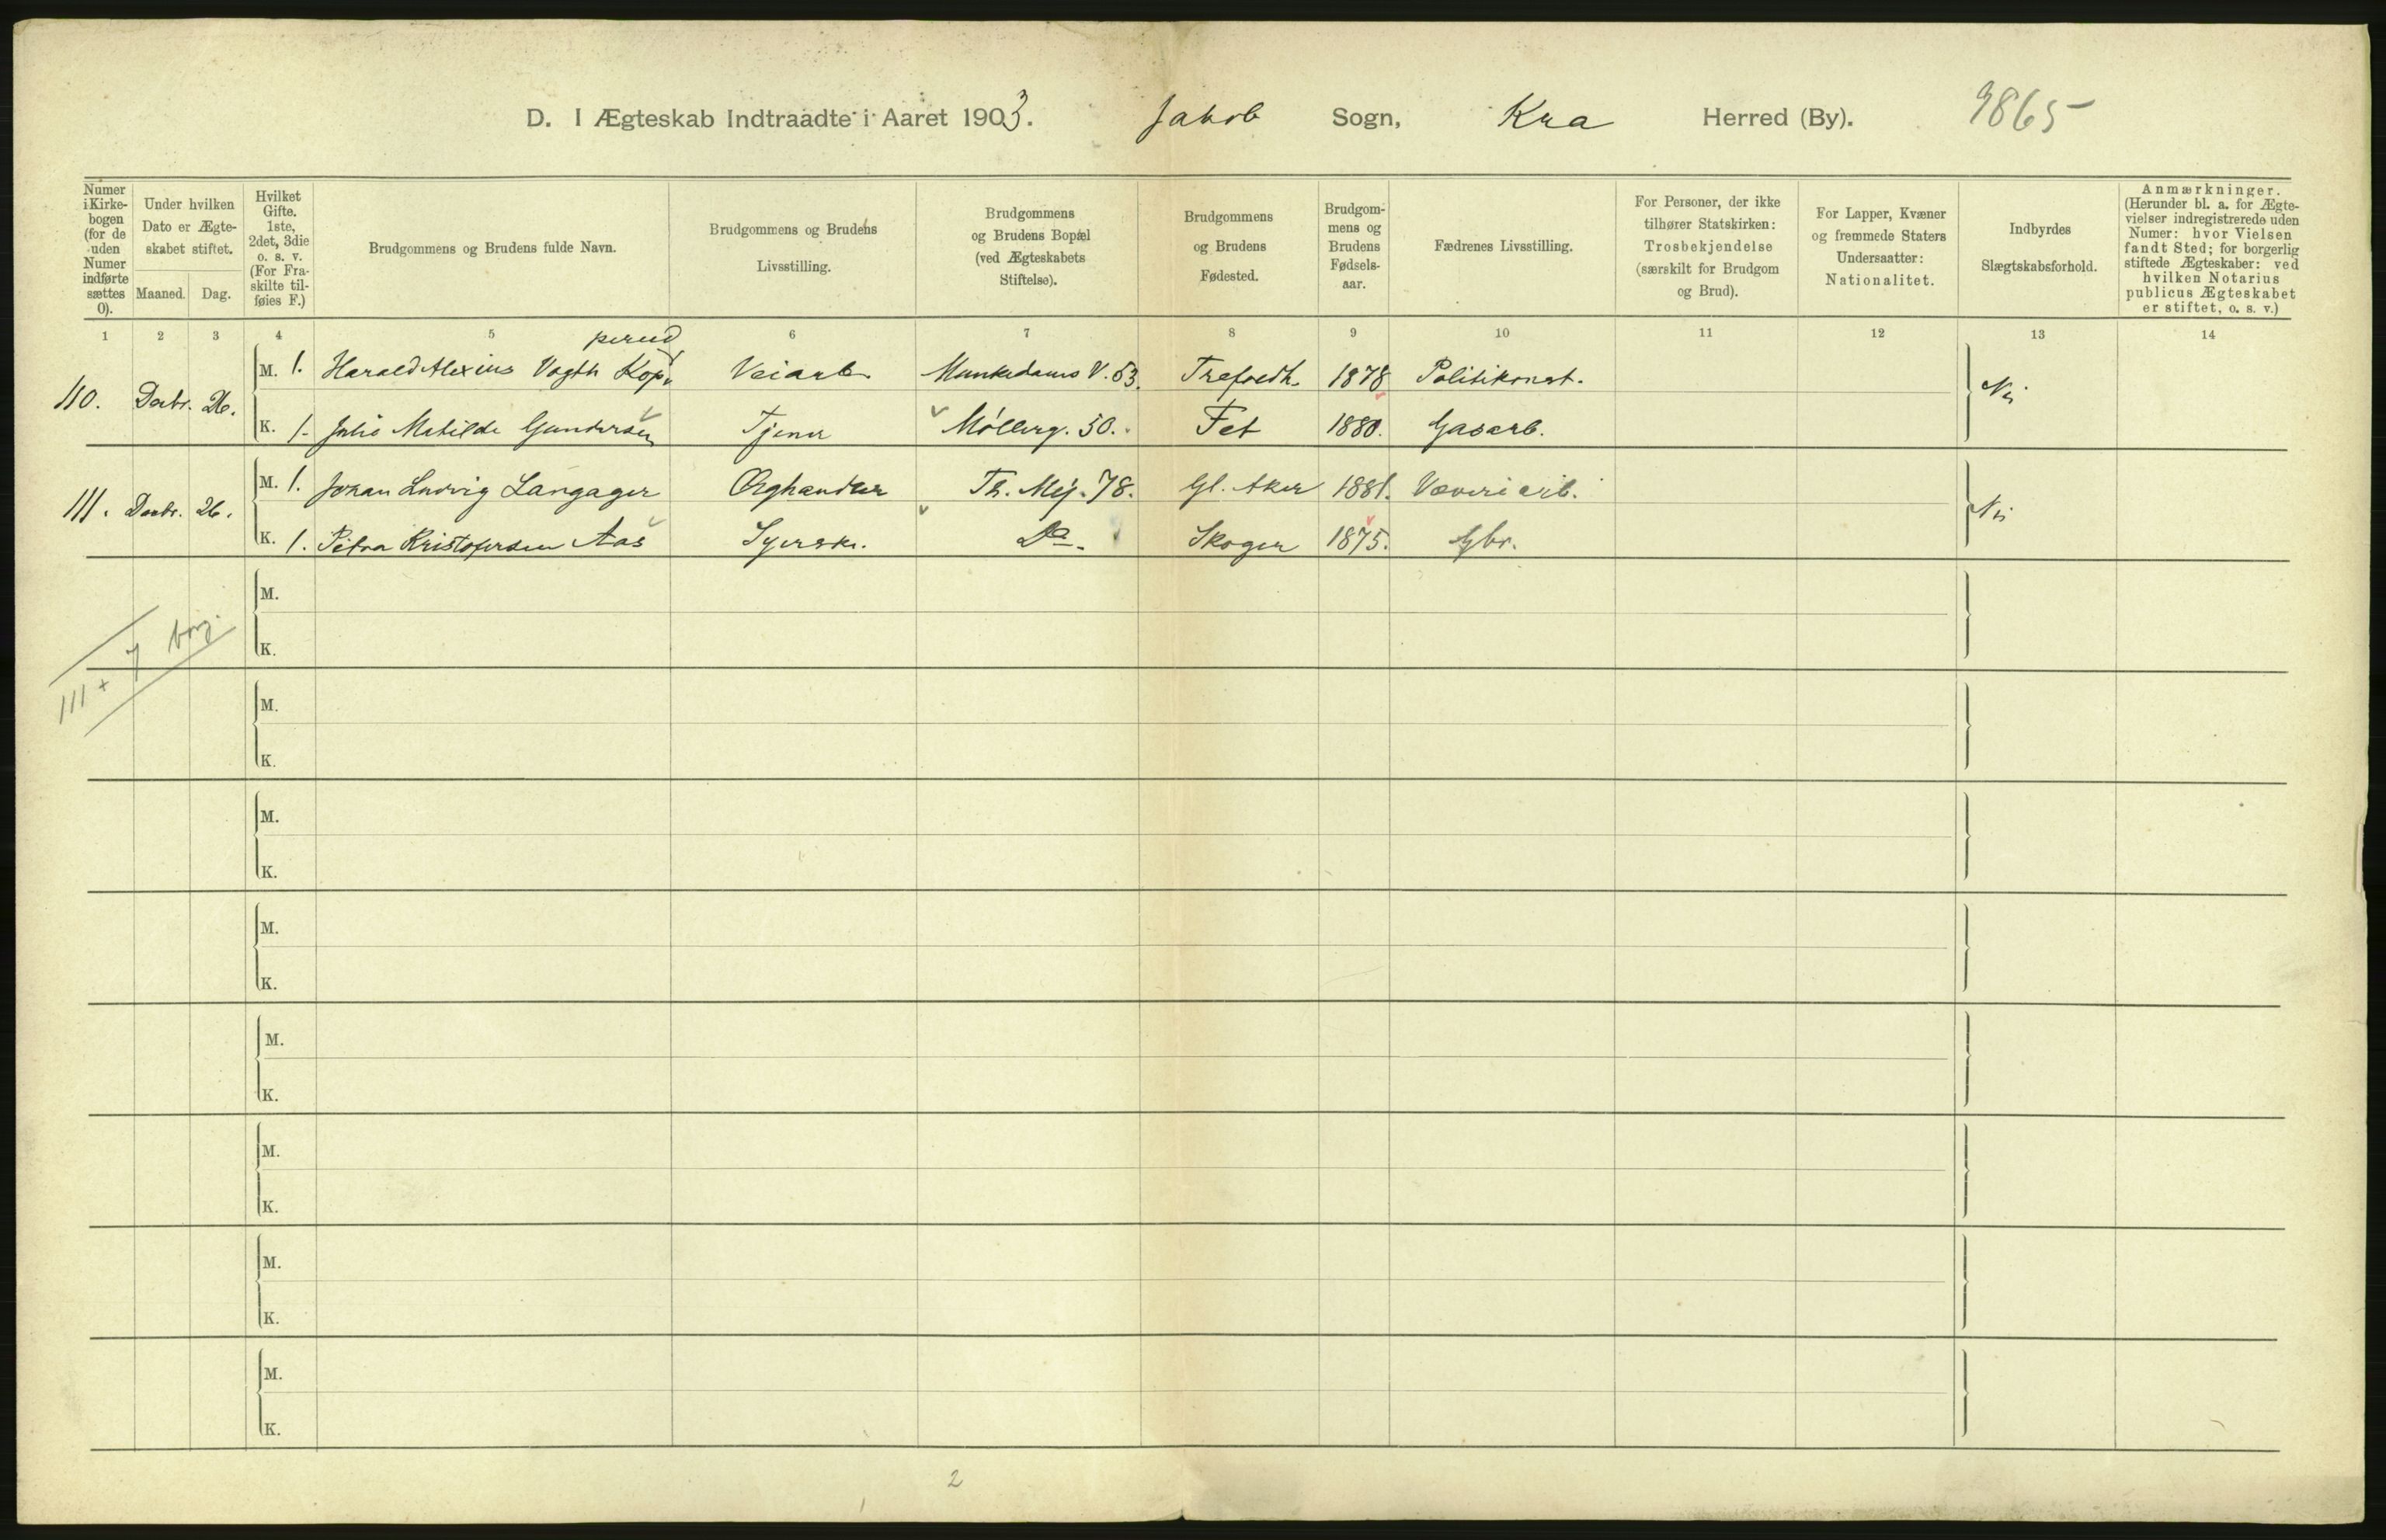 D. I Ægteskab Indtraadte i Aaret 1903. Jakob Sogn, Kra Herred (By). 9865
Numer i Kirke-bogen (for de uden Numer indførte sættes 0).
Under hvilken Dato er Ægte-skabet stiftet.
Maaned. Dag.
Hvilket Gifte. 1ste, 2det, 3die o. s. v. (For Fra-skilte til-føies F.)
Brudgommens og Brudens fulde Navn.
Brudgommens og Brudens Livsstilling.
Brudgommens og Brudens Bopæl (ved Ægteskabets Stiftelse).
Brudgommens og Brudens Fødested.
Brudgom-mens og Brudens Fødsels-aar.
Fædrenes Livsstilling.
For Personer, der ikke tilhører Statskirken: Trosbekjendelse (særskilt for Brudgom og Brud).
For Lapper, Kvæner og fremmede Staters Undersaatter: Nationalitet.
Indbyrdes Slægtskabsforhold.
Anmærkninger. (Herunder bl. a. for Ægte-vielser indregistrerede uden Numer: hvor Vielsen fandt Sted; for borgerlig stiftede Ægteskaber: ved hvilken Notarius publicus Ægteskabet er stiftet, o. s. v.)
1 2 3 4 5 6 7 8 9 10 11 12 13 14
perud
110. Decbr. 26. M. 1. Harald Alexius Vogth Kop Veiarb. Munkedams V. 53. 1878 Politikonst. Nei
K. 1. Julie Matilde Gundersen Tjener Møllerg. 50. Fet 1880. Gasarb.
111. Decbr. 26. M. 1. Johan Ludvig Langager Ølghandler Th. Mej. 78. Gl. Aker 1881. Væveriarb. Nei
K. 1. Petra Kristofersen Aas Syersk. Do. Skoger 1875. Gbr.
111 + 7 borg.
M.
K.
M.
K.
M.
K.
M.
K.
M.
K.
M.
K.
M.
K.
M.
K.
2